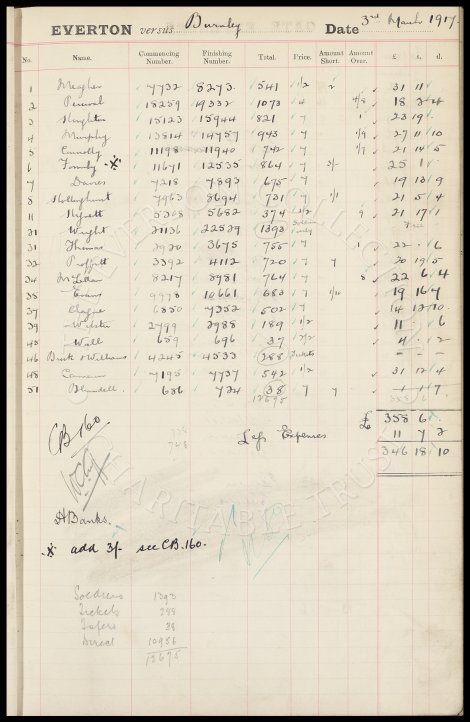 EVERTON versus Burnley Date 3rd March 1917.
No. Name. Commencing Number. Finishing Number. Total. Price. Amount Short. Amount Over. £ s. d.
1 Meagher 7732 8273 541 1/2 2 31 11
2 Percival 18259 19332 1073 4 18 3 4
3 15123 15944 821 7 23 19
4 Murphy 13814 14757 943 7 27 11 10
5 Connolly 11198 11940 742 7 21 14 5
6 Formby 11671 12535 864 7 3/- 25 1
7 Davies 7218 7893 675 7 19 13 9
8 Hollinghurst 7963 8694 731 7 1/1 21 5 4
11 Hyett 5308 5682 374 1/2 9 21 17 1
21 Wright 21136 22529 1393 Free
31 Thomas 2920 3675 755 7 1 22 - 6
32 Proffitt 3392 4112 720 7 7 20 19 5
34 McLellan 8217 8981 764 7 8 22 6 4
35 Evans 9978 10661 683 7 19 16 7
37 Clague 6850 7352 502 7 14 12 10
39 Webster 2799 2988 189 1/2 11 6
45 Wall 659 696 37 2/2 4 2
46 Birch & Williams 4245 4533 288 Tickets - - -
48 Cameron 7195 7737 542 1/2 31 12 4
51 Blundell 686 724 38 7 7 1 1 7
12695 358 6
£ 358 6
CB 160
Less Expenses 11 7 2
346 18 10
H Banks.
add 3/- see CB. 160.
Soldiers 1393
Tickets 288
38
10956
12675
EVERTON COLLECTION
CHARITABLE TRUST